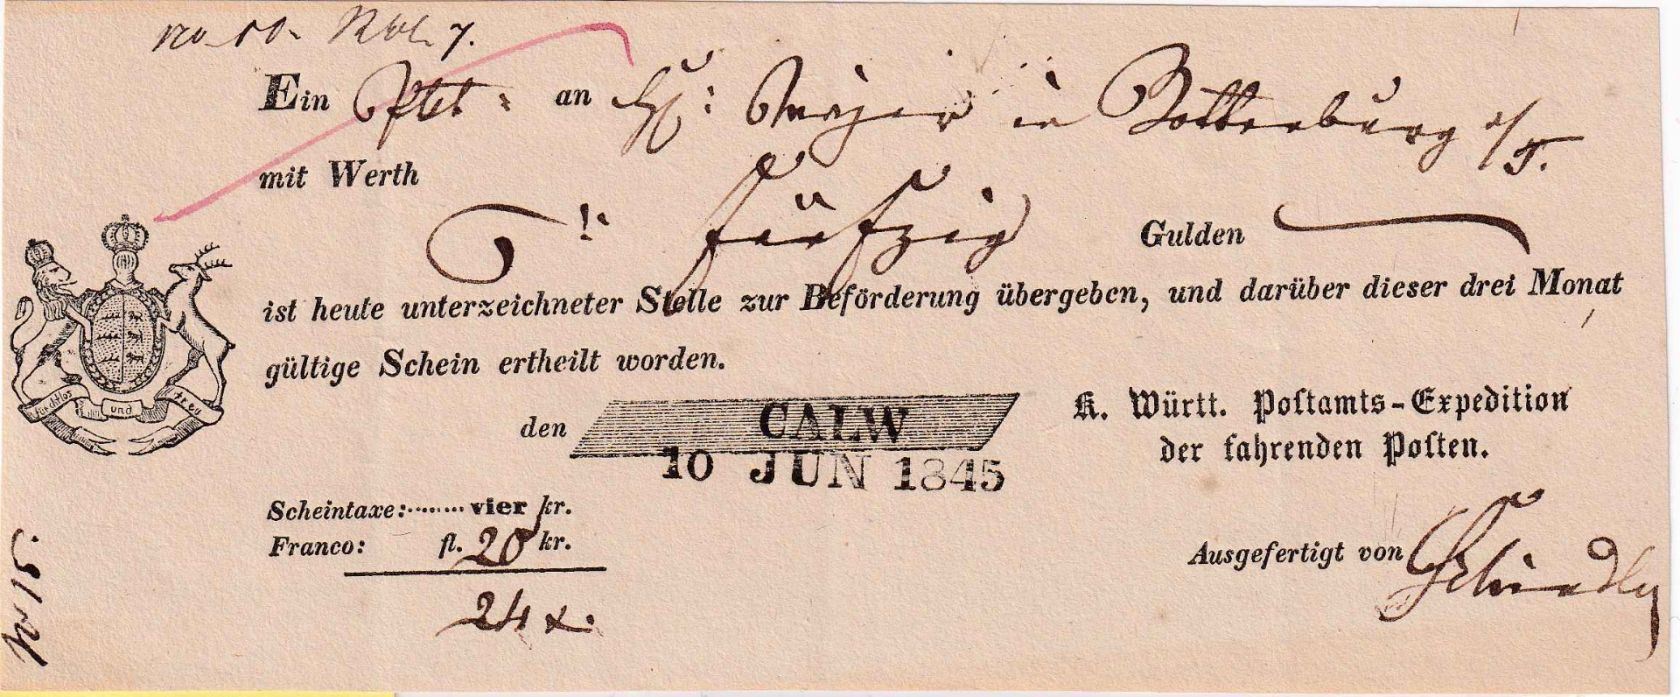 Ein Pkt: an H: Mayer in Rottenburg a/N.
mit Werth
fünfzig Gulden
ist heute unterzeichneter Stelle zur Beförderung übergeben, und darüber dieser drei Monat
gültige Schein ertheilt worden.
furchtlos und treu
den CALW
10 JUN 1845
K. Württ. Postamts-Expedition
der fahrenden Posten.
Scheintaxe:........ vier kr.
Franco: fl. 20 kr.
24 x.
Ausgefertigt von